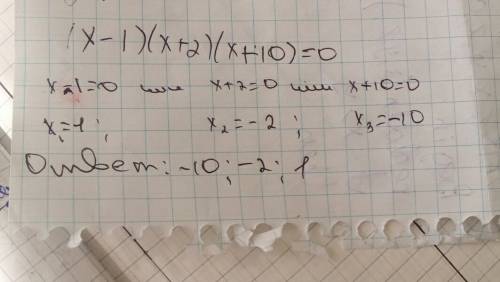 (x-1)(x+2)(x+10)=0
x-1=0 или x+2=0 или x+10=0
x₁=1; x₂=-2; x₃=-10
Ответ: -10; -2; 1